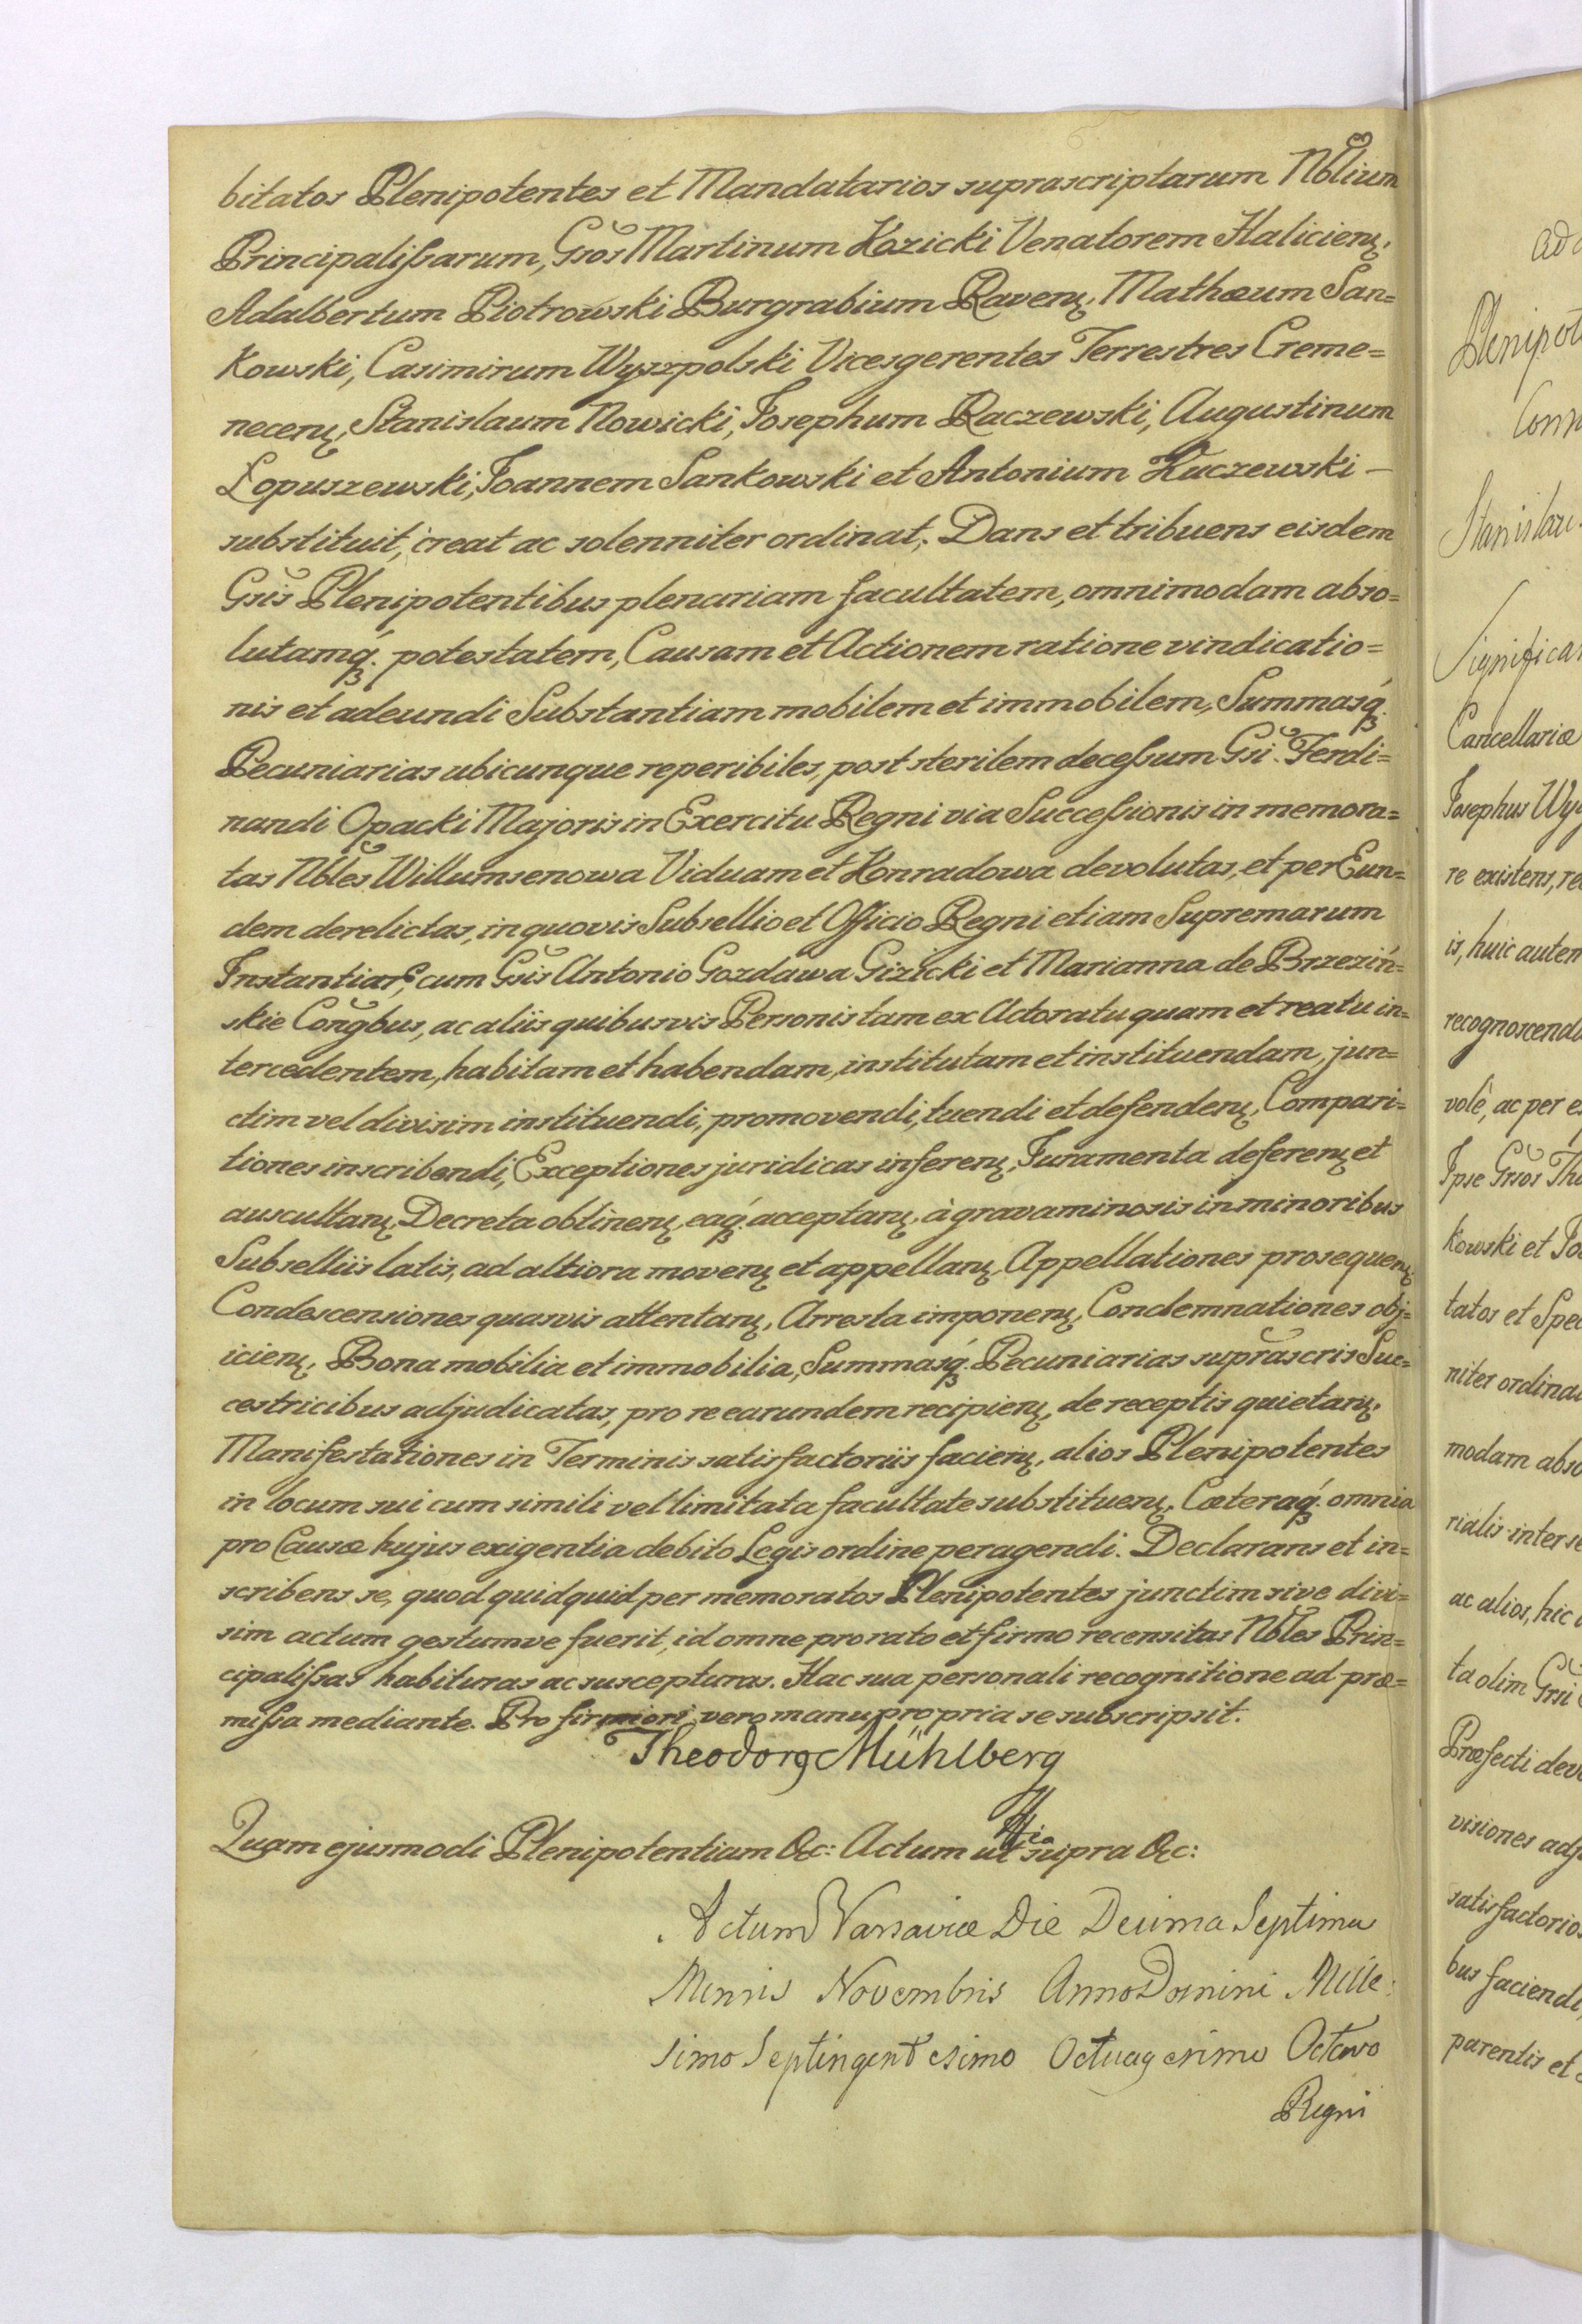 bitatos Plenipotentes et Mandatarios suprascriptarum Nblium
Principalissarum, Gsos Martinum Kozicki Venatorem Halicien.
Adalbertum Piotrowski Burgrabium Raven, Mathæum San=
kowski, Casimirum Wyszpolski Vicesgerentes Terrestres Creme=
necen, Stanislaum Nowicki, Josephum Raczewski, Augustinum
Łopuszewski, Joannem Sankowski et Antonium Kuczewski –
substituit, creat ac solenniter ordinat. Dans et tribuens eisdem
Gsis Plenipotentibus plenariam facultatem, omnimodam abso=
lutamq. potestatem, Causam et Actionem ratione vindicatio=
nis et adeundi Substantiam mobilem et immobilem, Summasq.
Pecuniarias ubicunque reperibiles, post sterilem decessum Gsi. Ferdi=
nandi Opacki Majoris in Exercitu Regni via Successionis in memora=
tas Nbles Willumsenowa Viduam et Konradowa devolutas, et per Eun=
dem derelictas, in quovis Subsellio et Officio Regni etiam Supremarum
Instantiar, cum Gsis Antonio Gozdawa Gizicki et Marianna de Brzeziń=
skie Congbus, ac aliis quibusvis Personis tam ex Actoratu quam et reatu in=
tercedentem, habitam et habendam, institutam et instituendam, jun=
ctim vel divisim instituendi, promovendi, tuendi et defenden, Compari=
tiones inscribendi, Exceptiones juridicas inferen, Juramenta deferen et
auscultan, Decreta obtinen, eaq. acceptan, à gravaminosis in minoribus
Subselliis latis, ad altiora moven et appellan, Appellationes prosequen
Condescensiones quasvis attentan, Arresta imponen, Condemnationes obj=
icien, Bona mobilia et immobilia, Summasq. Pecuniarias suprascris Suc=
cestricibus adjudicatas, pro re earundem recipien, de receptis quietan,
Manifestationes in Terminis satisfactoriis facien, alios Plenipotentes
in locum sui cum simili vel limitata facultate substituen, Cæteraq. omnia
pro Causæ hujus exigentia debito Legis ordine peragendi. Declarans et in=
scribens se, quod quidquid per memoratos Plenipotentes junctim sive divi=
sim actum gestumve fuerit, id omne pro rato et firmo recensitas Nbles Prin=
cipalissas habituras ac suscepturas. Hac sua personali recognitione ad præ=
missa mediante. Pro firmiori vero manu propria se subscripsit.
Theodorg Mühlberg
Quam ejusmodi Plenipotentiam &c: Actum ut supra &c:
Actum Varsaviæ Die Decima Septima
Mensis Novembris Anno Domini Mille:
simo Septingentesimo Octuagesimo Octavo
Regni
Plenipot
Stanislau
Significa
Cancellariæ
Josephus Wy
re existens, re
is, huic autem
recognoscenda
volè, ac per e
Ipse Gsos Th
kowski et Jo
tatos et Spe
niter ordina
modam abso
rialis inter se
ac alios, hic
ta olim Gsi
Præfecti dev
visiones adj
satisfactorio
bus faciendi,
parentis et